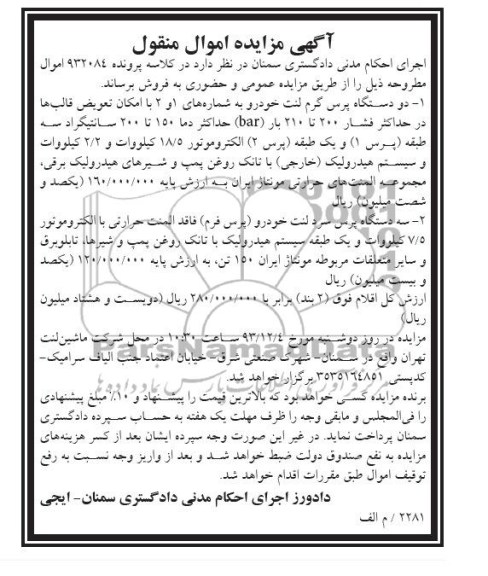 آگهی مزایده اموال منقول
اجرای احکام مدنی دادگستری سمنان در نظر دارد در کلاسه پرونده ۹۳۲۰۸۴ اموال
مطروحه ذیل را از طریق مزایده عمومی و حضوری به فروش برساند.
۱- دو دستگاه پرس گرم لنت خودرو به شماره‌های ۱و ۲ با امکان تعویض قالب‌ها
در حداکثر فشار ۲۰۰ تا ۲۱۰ بار (bar) حداکثر دما ۱۵۰ تا ۲۰۰ سانتیگراد سه
طبقه (پرس ۱) و یک طبقه (پرس ۲) الکتروموتور ۱۸/۵ کیلووات و ۲/۲ کیلووات
و سیستم هیدرولیک (خارجی) با تانک روغن پمپ و شیرهای هیدرولیک برقی،
مجموعه المنت‌های حرارتی مونتاژ ایران به ارزش پایه ۱۶۰/۰۰۰/۰۰۰ (یکصد و
شصت میلیون) ریال
۲- سه دستگاه پرس سرد لنت خودرو (پرس فرم) فاقد المنت حرارتی با الکتروموتور
۷/۵ کیلووات و یک طبقه سیستم هیدرولیک با تانک روغن پمپ و شیرها، تابلوبرق
و سایر متعلقات مربوطه مونتاژ ایران ۱۵۰ تن، به ارزش پایه ۱۲۰/۰۰۰/۰۰۰ (یکصد
و بیست میلیون) ریال
ارزش کل اقلام فوق (۲ بند) برابر با ۲۸۰/۰۰۰/۰۰۰ ریال (دویست و هشتاد میلیون
ریال)
مزایده در روز دوشنبه مورخ ۹۳/۱۲/۴ ساعت ۱۰:۳۰ در محل شرکت ماشین‌لنت
تهران واقع در سمنان- شهرک صنعتی شرق- خیابان اعتماد جنب الیاف سرامیک-
کدپستی ۳۵۳۵۱۶۴۸۵۱ برگزار خواهد شد.
برنده مزایده کسی خواهد بود که بالاترین قیمت را پیشنهاد و ۱۰٪ مبلغ پیشنهادی
را فی‌المجلس و مابقی وجه را ظرف مهلت یک هفته به حساب سپرده دادگستری
سمنان پرداخت نماید. در غیر این صورت وجه سپرده ایشان بعد از کسر هزینه‌های
مزایده به نفع صندوق دولت ضبط خواهد شد و بعد از واریز وجه نسبت به رفع
توقیف اموال طبق مقررات اقدام خواهد شد.
دادورز اجرای احکام مدنی دادگستری سمنان- ایجی
۲۲۸۱ / م الف